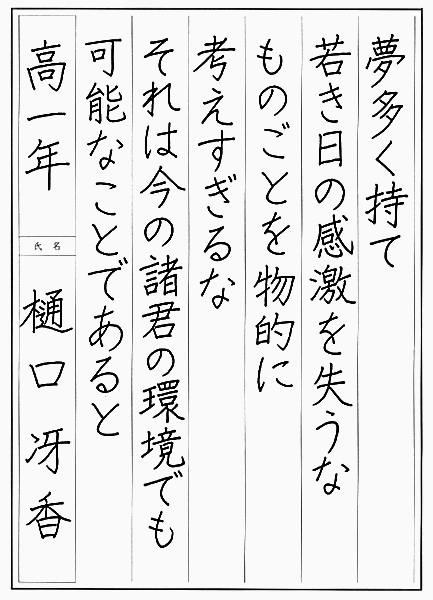 夢多く持て
若き日の感激を失うな
ものごとを物的に
考えすぎるな
それは今の諸君の環境でも
可能なことであると
高一年
氏名
樋口冴香